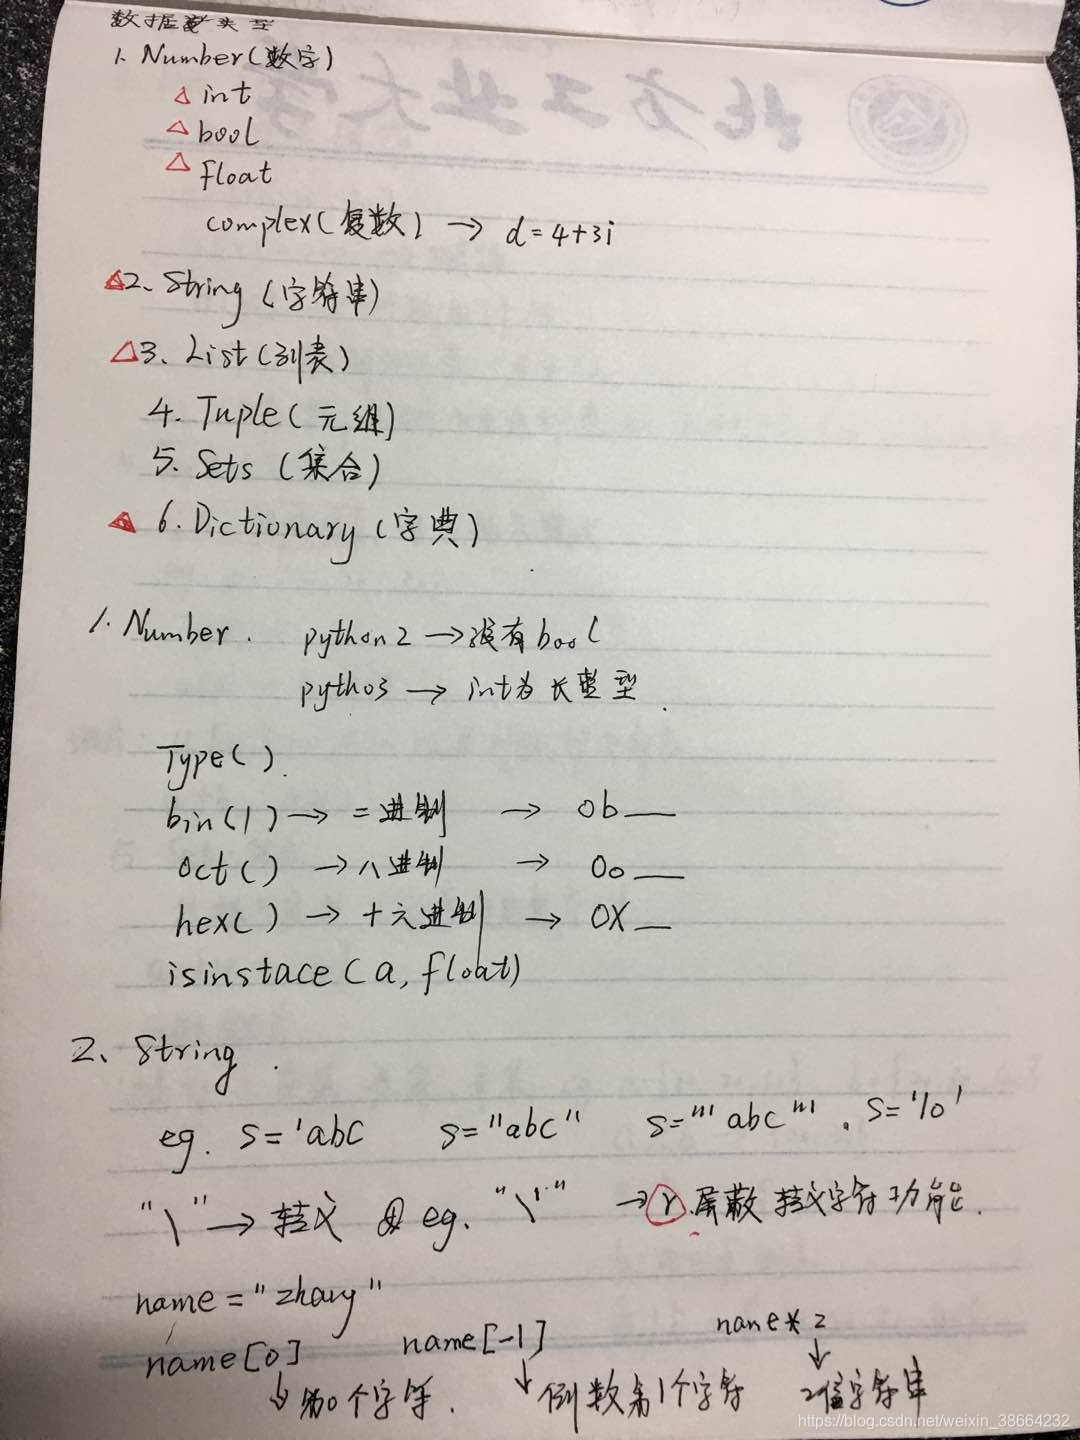 数据类型
1. Number(数字)
△ int
△ bool
△ float
complex(复数) → d=4+3i
△2、String (字符串)
△3、List(列表)
4. Tuple(元组)
5. Sets (集合)
▲ 6. Dictionary (字典)
1. Number. python2 →没有bool
pytho3 → int为长整型.
Type().
bin(1) → 二进制 → 0b__
oct() → 八进制 → 0o__
hex() → 十六进制 → 0X__
isinstace(a, float)
2、String.
eg. s='abc s="abc" s="''abc"''. s='10'
"\" → 转义 eg. "\'" → r. 屏蔽转义字符功能.
name="zhang"
name[0] name[-1] name*2
↓ 第0个字符. ↓ 倒数第1个字符 ↓ 2倍字符串
北方工业大学
https://blog.csdn.net/weixin_38664232